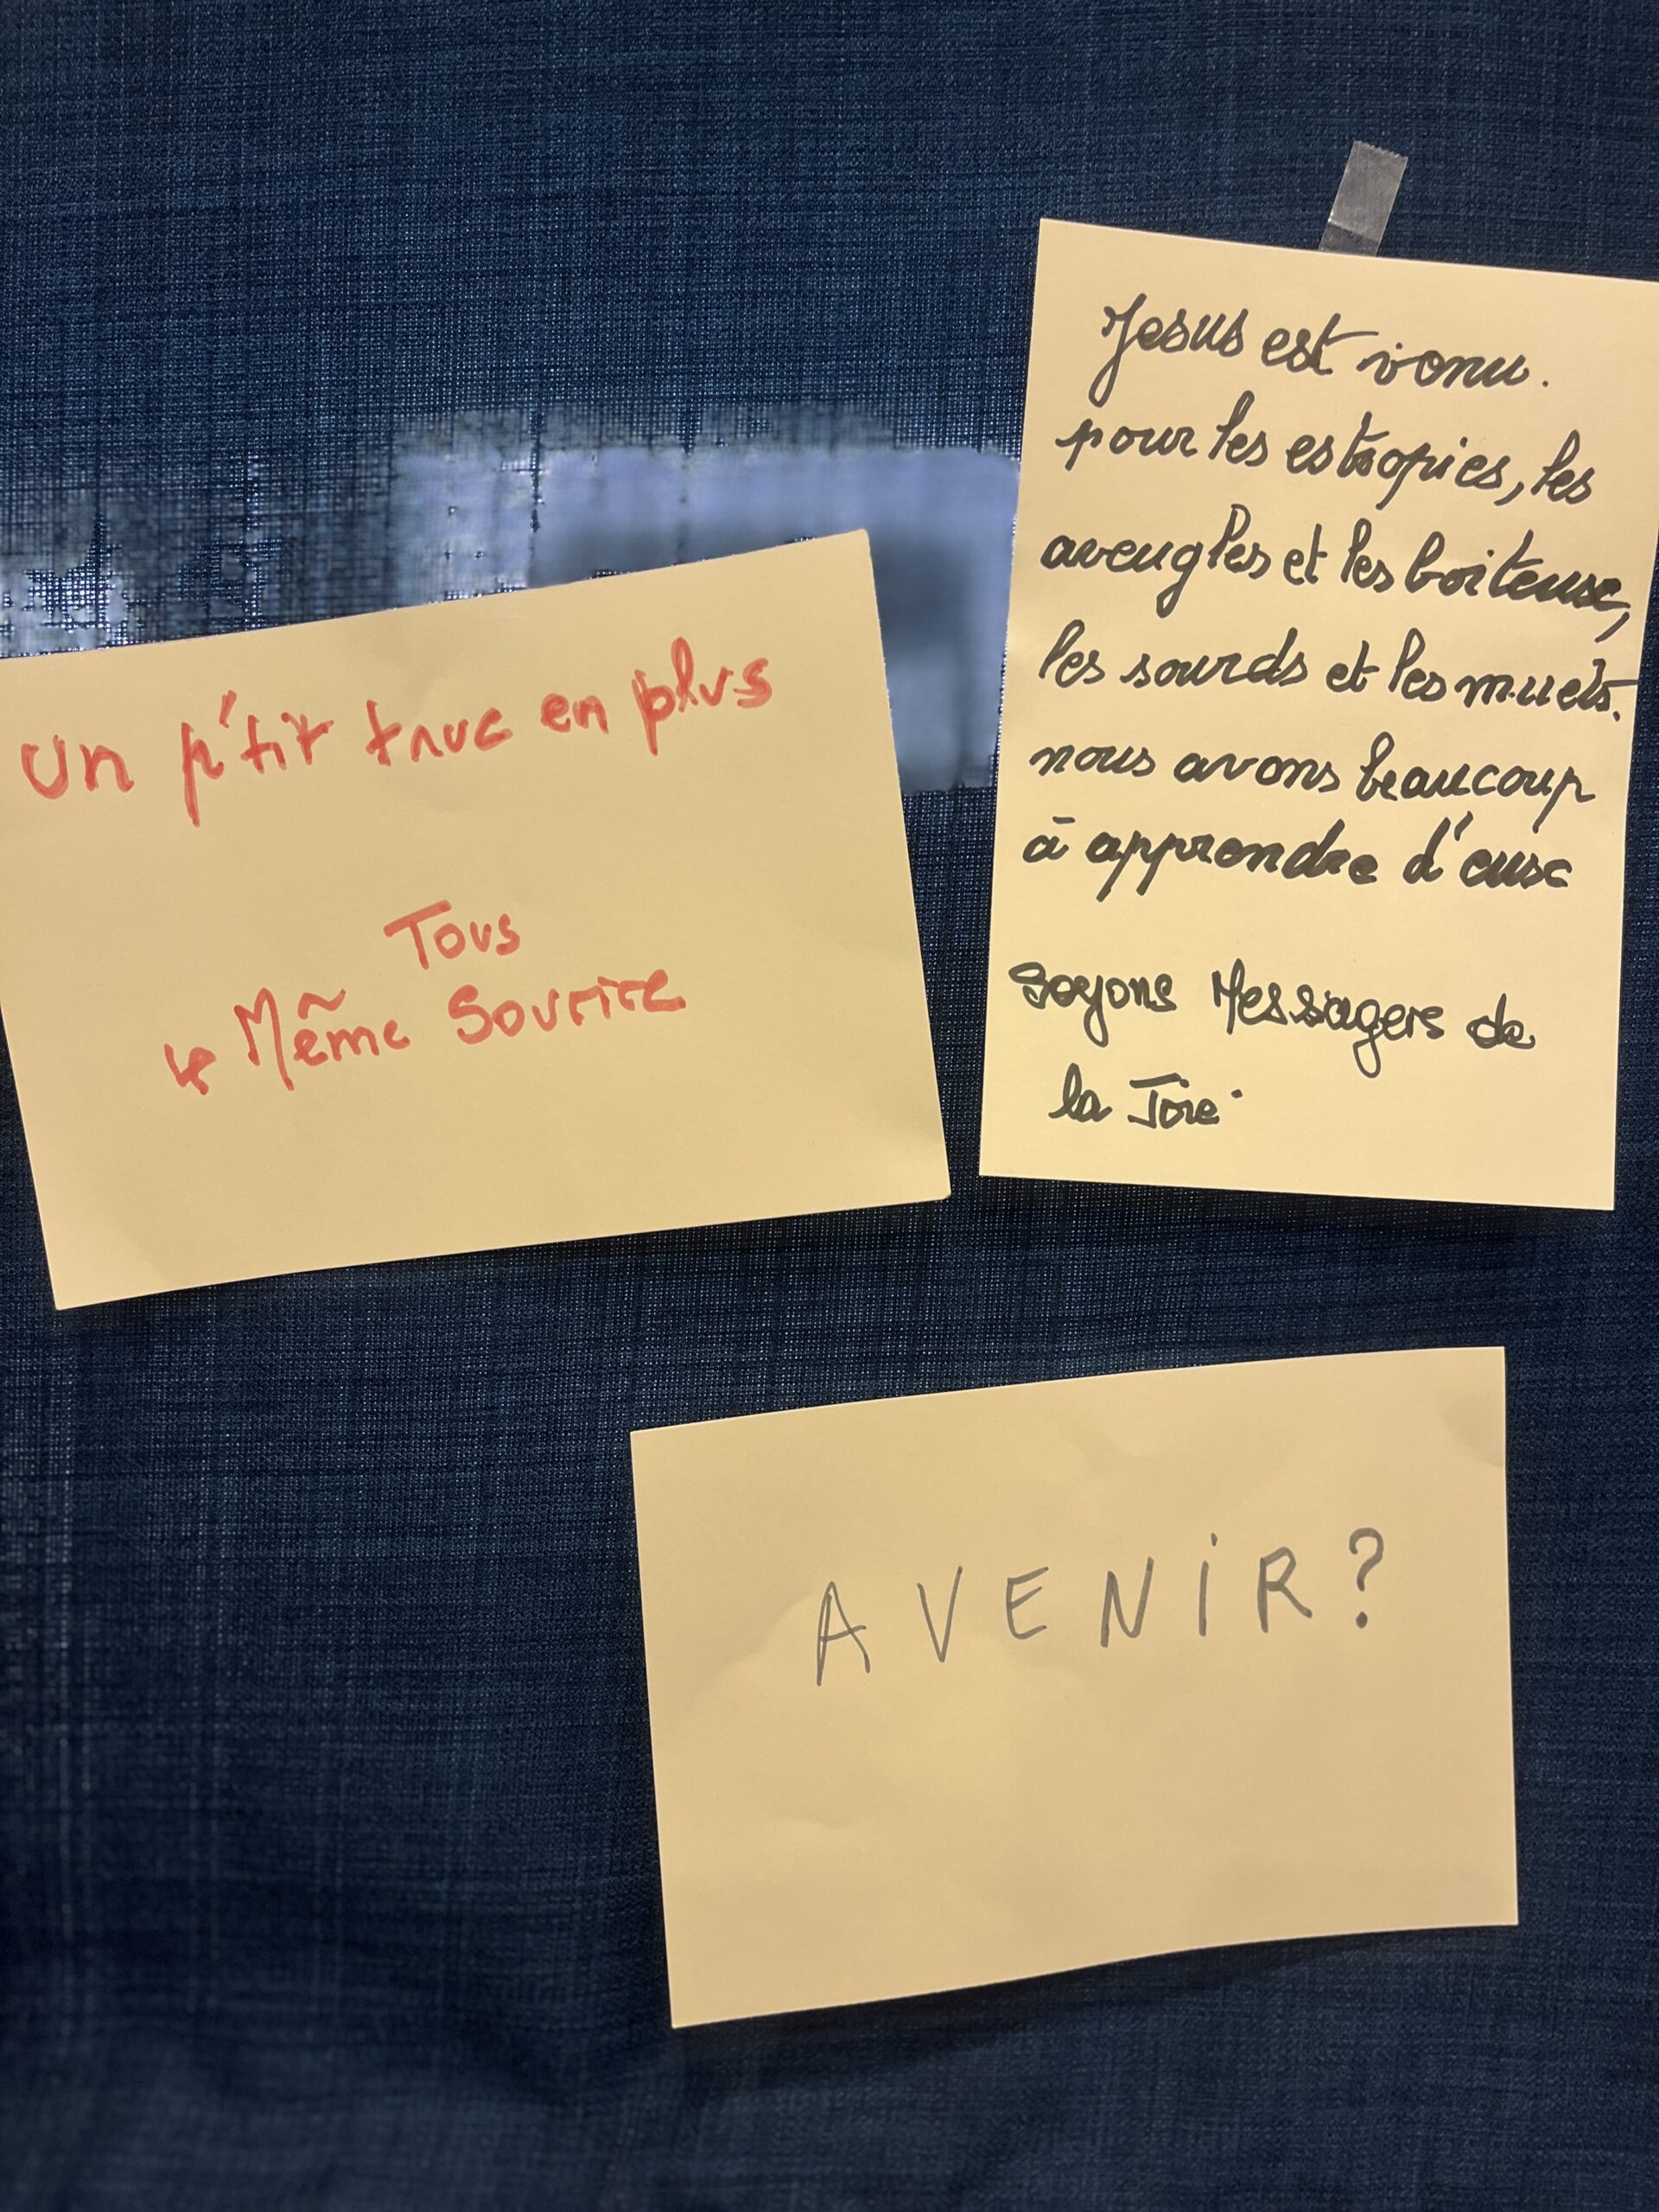 Un p'tit truc en plus
Tous
↳ Même Sourire
Jesus est venu.
pour les estropies, les
aveugles et les boiteux,
les sourds et les muets.
nous avons beaucoup
à apprendre d'eux
Soyons Messagers de
la Joie.
AVENIR?